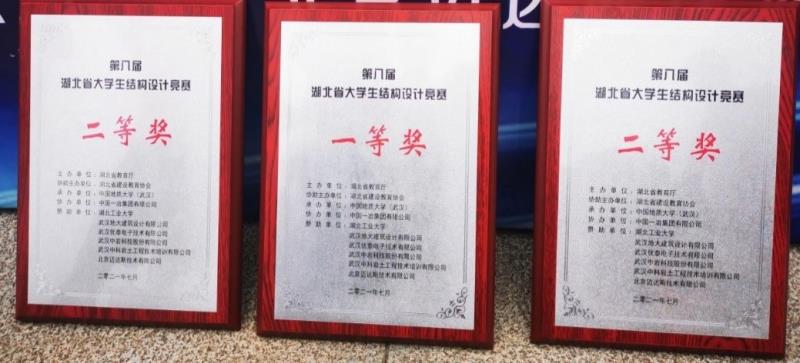 第八届
湖北省大学生结构设计竞赛
二等奖
主办单位：湖北省教育厅
协助主办单位：湖北省建设教育协会
承办单位：中国地质大学（武汉）
协办单位：中国一冶集团有限公司
赞助单位：湖北工业大学
武汉地大建筑设计有限公司
武汉优泰电子技术有限公司
武汉中岩科技股份有限公司
武汉中科岩土工程技术培训有限公司
北京迈达斯技术有限公司
二〇二一年七月
第八届
湖北省大学生结构设计竞赛
一等奖
主办单位：湖北省教育厅
协助主办单位：湖北省建设教育协会
承办单位：中国地质大学（武汉）
协办单位：中国一冶集团有限公司
赞助单位：湖北工业大学
武汉地大建筑设计有限公司
武汉优泰电子技术有限公司
武汉中岩科技股份有限公司
武汉中科岩土工程技术培训有限公司
北京迈达斯技术有限公司
二〇二一年七月
第八届
湖北省大学生结构设计竞赛
二等奖
主办单位：湖北省教育厅
协助主办单位：湖北省建设教育协会
承办单位：中国地质大学（武汉）
协办单位：中国一冶集团有限公司
赞助单位：湖北工业大学
武汉地大建筑设计有限公司
武汉优泰电子技术有限公司
武汉中岩科技股份有限公司
武汉中科岩土工程技术培训有限公司
北京迈达斯技术有限公司
二〇二一年七月